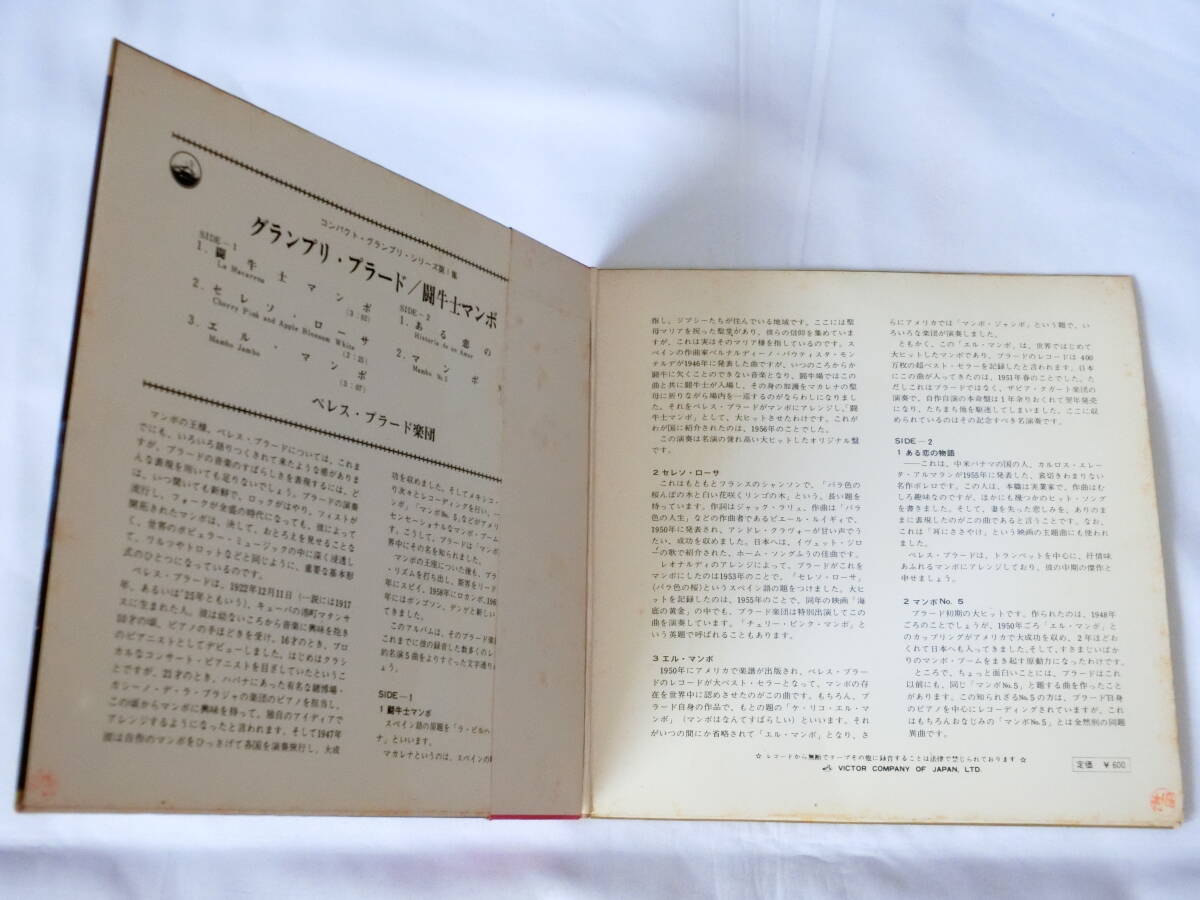 コンパクト・グランプリ・シリーズ第1集
グランプリ・プラード/闘牛士マンボ
SIDE-1
1. 闘牛士マンボ
La Macarena (3:02)
2. セレソ・ローサ
Cherry Pink and Apple Blossom White (2:25)
3. エル・マンボ
Mambo Jambo (3:07)
SIDE-2
1. ある恋の
Historia de un Amor
2. マンボ
Mambo No.5
ペレス・プラード楽団
マンボの王様、ペレス・プラードについては、これま
でにも、いろいろ語りつくされて来たような感がありま
すが、プラードの音楽のすばらしさを表現するには、ど
んな表現を用いても足りないでしょう。プラードの演奏
は、いつ聞いても新鮮で、ロックがはやり、ツイストが
流行し、フォークが全盛の時代になっても、彼によって
開拓されたマンボは、決して、おとろえを見せることな
く、世界のポピュラー・ミュージックの中に深く浸透し
て、ワルツやトロットなどと同じように、重要な基本形
式のひとつになっているのです。
ペレス・プラードは、1922年12月11日(一説には1917
年、あるいは'25年ともいう)、キューバの港町マタンサ
スに生まれた人。彼は幼ないころから音楽に興味を抱き
10才の頃、ピアノの手ほどきを受け、16才のとき、プロ
のピアニストとしてデビューしました。はじめはクラシ
カルなコンサート・ピアニストを目ざしていたというこ
とですが、21才のとき、ハバナにあった有名な賭博場・
カシーノ・デ・ラ・プラジャの楽団のピアノを担当し、
この頃からマンボに興味を持って、独自のアイディアで
アレンジするようになったと言われます。そして1947年
には自作のマンボをひっさげて各国を演奏旅行し、大成
功を収めました。そしてメキシコ・
り次々とレコーディングを行い、
ンボ」「マンボNo.5」などがアメリ
センセーショナルなマンボ・ブーム
す。こうして、プラードは「マンボ
界中にその名を知られました。
マンボの王座についた後も、プラ
・リズムを打ち出し、斯界をリード
年にスビイ、1958年にロカンボ、196
年にはボンゴソン、デンゲと新しい
てきました。
このアルバムは、そのプラード楽
これまでに彼の録音した数多くのレ
的名演5曲をよりすぐった文字通り
ょう。
SIDE-1
1 闘牛士マンボ
スペイン語の原題を「ラ・ビルヘ
ナ」といいます。
マカレナというのは、スペインの
指し、ジプシーたちが住んでいる地域です。ここには聖
母マリアを祝った聖堂があり、彼らの信仰を集めていま
すが、これは実はそのマリア様を指しているのです。ス
ペインの作曲家ベルナルディーノ・バウティスタ・モン
テルデが1946年に発表した曲ですが、いつのころからか
闘牛に欠くことのできない音楽となり、闘牛場ではこの
曲と共に闘牛士が入場し、その身の加護をマカレナの聖
母に祈りながら場内を一巡するのがならわしになりまし
た。それをペレス・プラードがマンボにアレンジし、「闘
牛士マンボ」として、大ヒットさせたわけです。これが
わが国に紹介されたのは、1956年のことでした。
この演奏は名演の誉れ高い大ヒットしたオリジナル盤
です。
2 セレソ・ローサ
これはもともとフランスのシャンソンで、「バラ色の
桜んぼの木と白い花咲くリンゴの木」という、長い題を
持っています。作詞はジャック・ラリュ、作曲は「バラ
色の人生」などの作曲者であるピエール・ルイギィで、
1950年に発表され、アンドレ・クラヴォーが甘い声でう
たい、成功を収めました。日本へは、イヴェット・ジロ
ーの歌で紹介された、ホーム・ソングふうの佳曲です。
レオナルディのアレンジによって、プラードがこれを
マンボにしたのは1953年のことで、「セレソ・ローサ」
(バラ色の桜)というスペイン語の題をつけました。大ヒ
ットを記録したのは、1955年のことで、同年の映画「海
底の黄金」の中でも、プラード楽団は特別出演してこの
曲を演奏しています。「チェリー・ピンク・マンボ」と
いう英題で呼ばれることもあります。
3 エル・マンボ
1950年にアメリカで楽譜が出版され、ペレス・プラー
ドのレコードが大ベスト・セラーとなって、マンボの存
在を世界中に認めさせたのがこの曲です。もちろん、プ
ラード自身の作品で、もとの題の「ケ・リコ・エル・マ
ンボ」(マンボはなんてすばらしい)といいます。それ
がいつの間にか省略されて「エル・マンボ」となり、さ
らにアメリカでは「マンボ・ジャンボ」という題で、い
ろいろな楽団が演奏しました。
ともかく、この「エル・マンボ」は、世界ではじめて
大ヒットしたマンボであり、プラードのレコードは 400
万枚の超ベスト・セラーを記録したと言われます。日本
にこの曲が入ってきたのは、1951年春のことでした。た
だしこれはプラードではなく、ザビア・クガート楽団の
演奏で、自作自演の本命盤は1年余りおくれて翌年発売
になり、たちまち他を駆逐してしまいました。ここに収
められているのはその記念すべき名演奏です。
SIDE-2
1 ある恋の物語
――これは、中米パナマの国の人、カルロス・エレー
タ・アルマランが1955年に発表した、哀切きわまりない
名作ボレロです。この人は、本職は実業家で、作曲はむ
しろ趣味なのですが、ほかにも幾つかのヒット・ソング
を書きました。そして、妻を失った悲しみを、ありのま
まに表現したのがこの曲であると言うことです。なお、
これは「耳にささやけ」という映画の主題曲にも使われ
ました。
ペレス・プラードは、トランペットを中心に、抒情味
あふれるマンボにアレンジしており、彼の中期の傑作と
申せましょう。
2 マンボNo. 5
プラード初期の大ヒットです。作られたのは、1948年
ごろのことでしょうが、1950年ごろ「エル・マンボ」と
のカップリングがアメリカで大成功を収め、2年ほどお
くれて日本へも入ってきました。そして、すさまじいばか
りのマンボ・ブームをまき起す原動力になったわけです。
ところで、ちょっと面白いことには、プラードはこれ
以前にも、同じ「マンボNo.5」と題する曲を作ったこと
があります。この知られざるNo.5の方は、プラード自身
のピアノを中心にレコーディングされていますが、これ
はもちろんおなじみの「マンボNo.5」とは全然別の同題
異曲です。
☆ レコードから無断でテープその他に録音することは法律で禁じられております ☆
VICTOR COMPANY OF JAPAN, LTD.
定価 ¥600